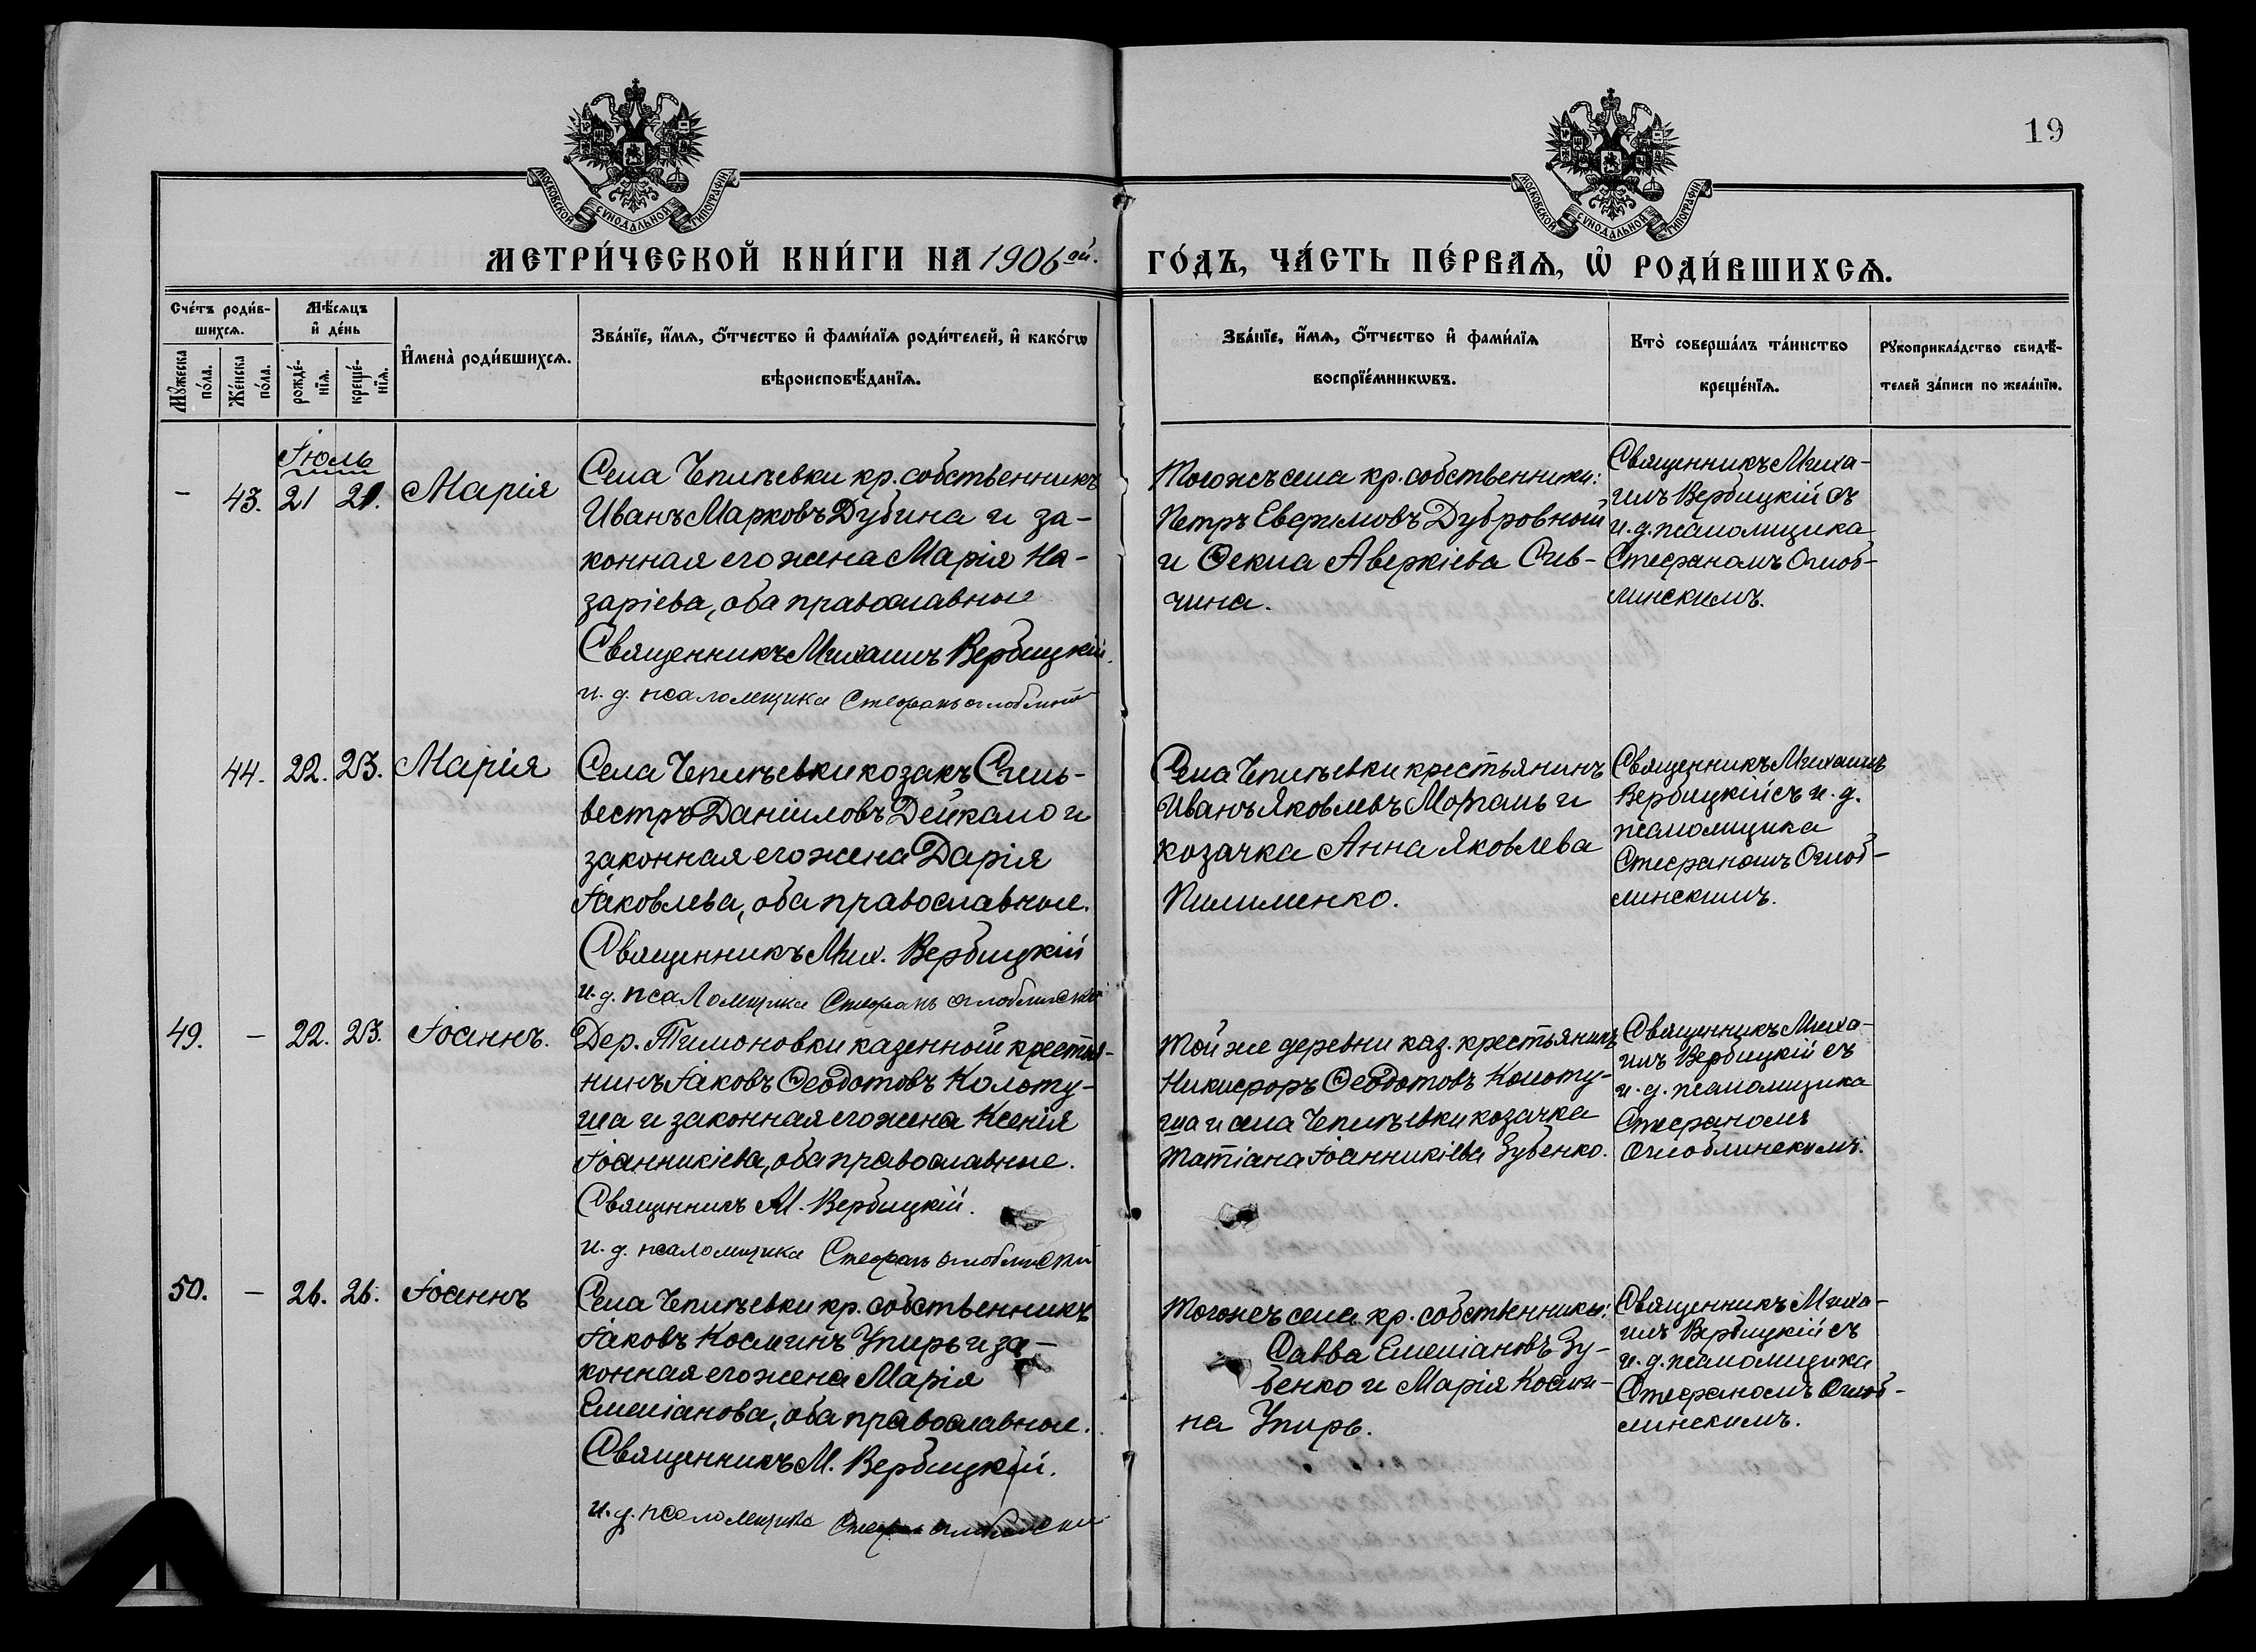 19
МОСКОВСКОЙ СУНОДАЛЬНОЙ ТИПОГРАФІИ
МОСКОВСКОЙ СУНОДАЛЬНОЙ ТИПОГРАФІИ
МЕТРИ́ЧЕСКОЙ КНИ́ГИ НА 1906ой.
ГО́ДЪ, ЧА́СТЬ ПЕ́РВАѦ, Ѡ҆ РОДИ́ВШИХСѦ.
Сче́тъ роди́в-
шихсѧ.
Мꙋ́жеска
по́ла.
Же́нска
по́ла.
Мѣ́сѧцъ
и҆ де́нь
рожде́-
нїѧ.
креще́-
нїѧ.
И҆мена̀ роди́вшихсѧ.
Зва́нїе, и҆́мѧ, ѻ҆́тчество и҆ фами́лїѧ роди́телей, и҆ како́гѡ
вѣроисповѣ́данїѧ.
Зва́нїе, и҆́мѧ, ѻ҆́тчество и҆ фами́лїѧ
воспрїе́мникѡвъ.
Кто̀ соверша́лъ та́инство
креще́нїѧ.
Рꙋкоприкла́дство свидѣ́-
телей за́писи по жела́нїю.
Іюль
– 43. 21 21. Марія
Села Чепилѣевки кр. собственникъ
Иванъ Марковъ Дубина и за-
конная его жена Марія На-
заріева, оба православные
Священникъ Михаилъ Вербицкій.
и. д. псаломщика Стефанъ
Тогожъ села кр. собственники:
Петръ Евфимовъ Дубровный
и Ѳекла Аверкіева Сив-
чина.
Священникъ Миха-
илъ Вербицкій съ
и. д. псаломщика
Стефаномъ Оглоб-
линскимъ.
44. 22. 23. Марія
Села Чепилѣевки козакъ Силь-
вестръ Даніиловъ Дейкало и
законная его жена Дарія
Іаковлева, оба православные.
Священникъ Мих. Вербицкій
и. д. псаломщика Стефанъ
Села Чепилѣевки крестьянинъ
Иванъ Яковлевъ и
козачка Анна Яковлева
Пилименко.
Священникъ Михаилъ
Вербицкій съ и. д.
псаломщика
Стефаномъ Оглоб-
линскимъ.
49. – 22. 23. Іоаннъ.
Дер. Тимоновки казенный крестья-
нинъ Іаковъ Ѳеодотовъ Колоту-
ша и законная его жена Ксенія
Іоанникіева, оба православные.
Священникъ М. Вербицкій.
и. д. псаломщика Стефанъ Оглоблинскій
Той же деревни каз. крестьянинъ
Никифоръ Ѳеодотовъ Колоту-
ша и села Чепилѣевки козачка
Татіана Іоанникіева Зубенко.
Священникъ Миха-
илъ Вербицкій съ
и. д. псаломщика
Стефаномъ
Оглоблинскимъ.
50. – 26. 26. Іоаннъ
Села Чепилѣевки кр. собственникъ
Іаковъ Косминъ Упирь и за-
конная его жена Марія
Емеліанова, оба православные.
Священникъ М. Вербицкій.
и. д. псаломщика
Тогожъ села кр. собственники:
Савва Емеліановъ Зу-
бенко и Марія Косми-
на Упирь.
Священникъ Миха-
илъ Вербицкій съ
и. д. псаломщика
Стефаномъ Оглоб-
линскимъ.